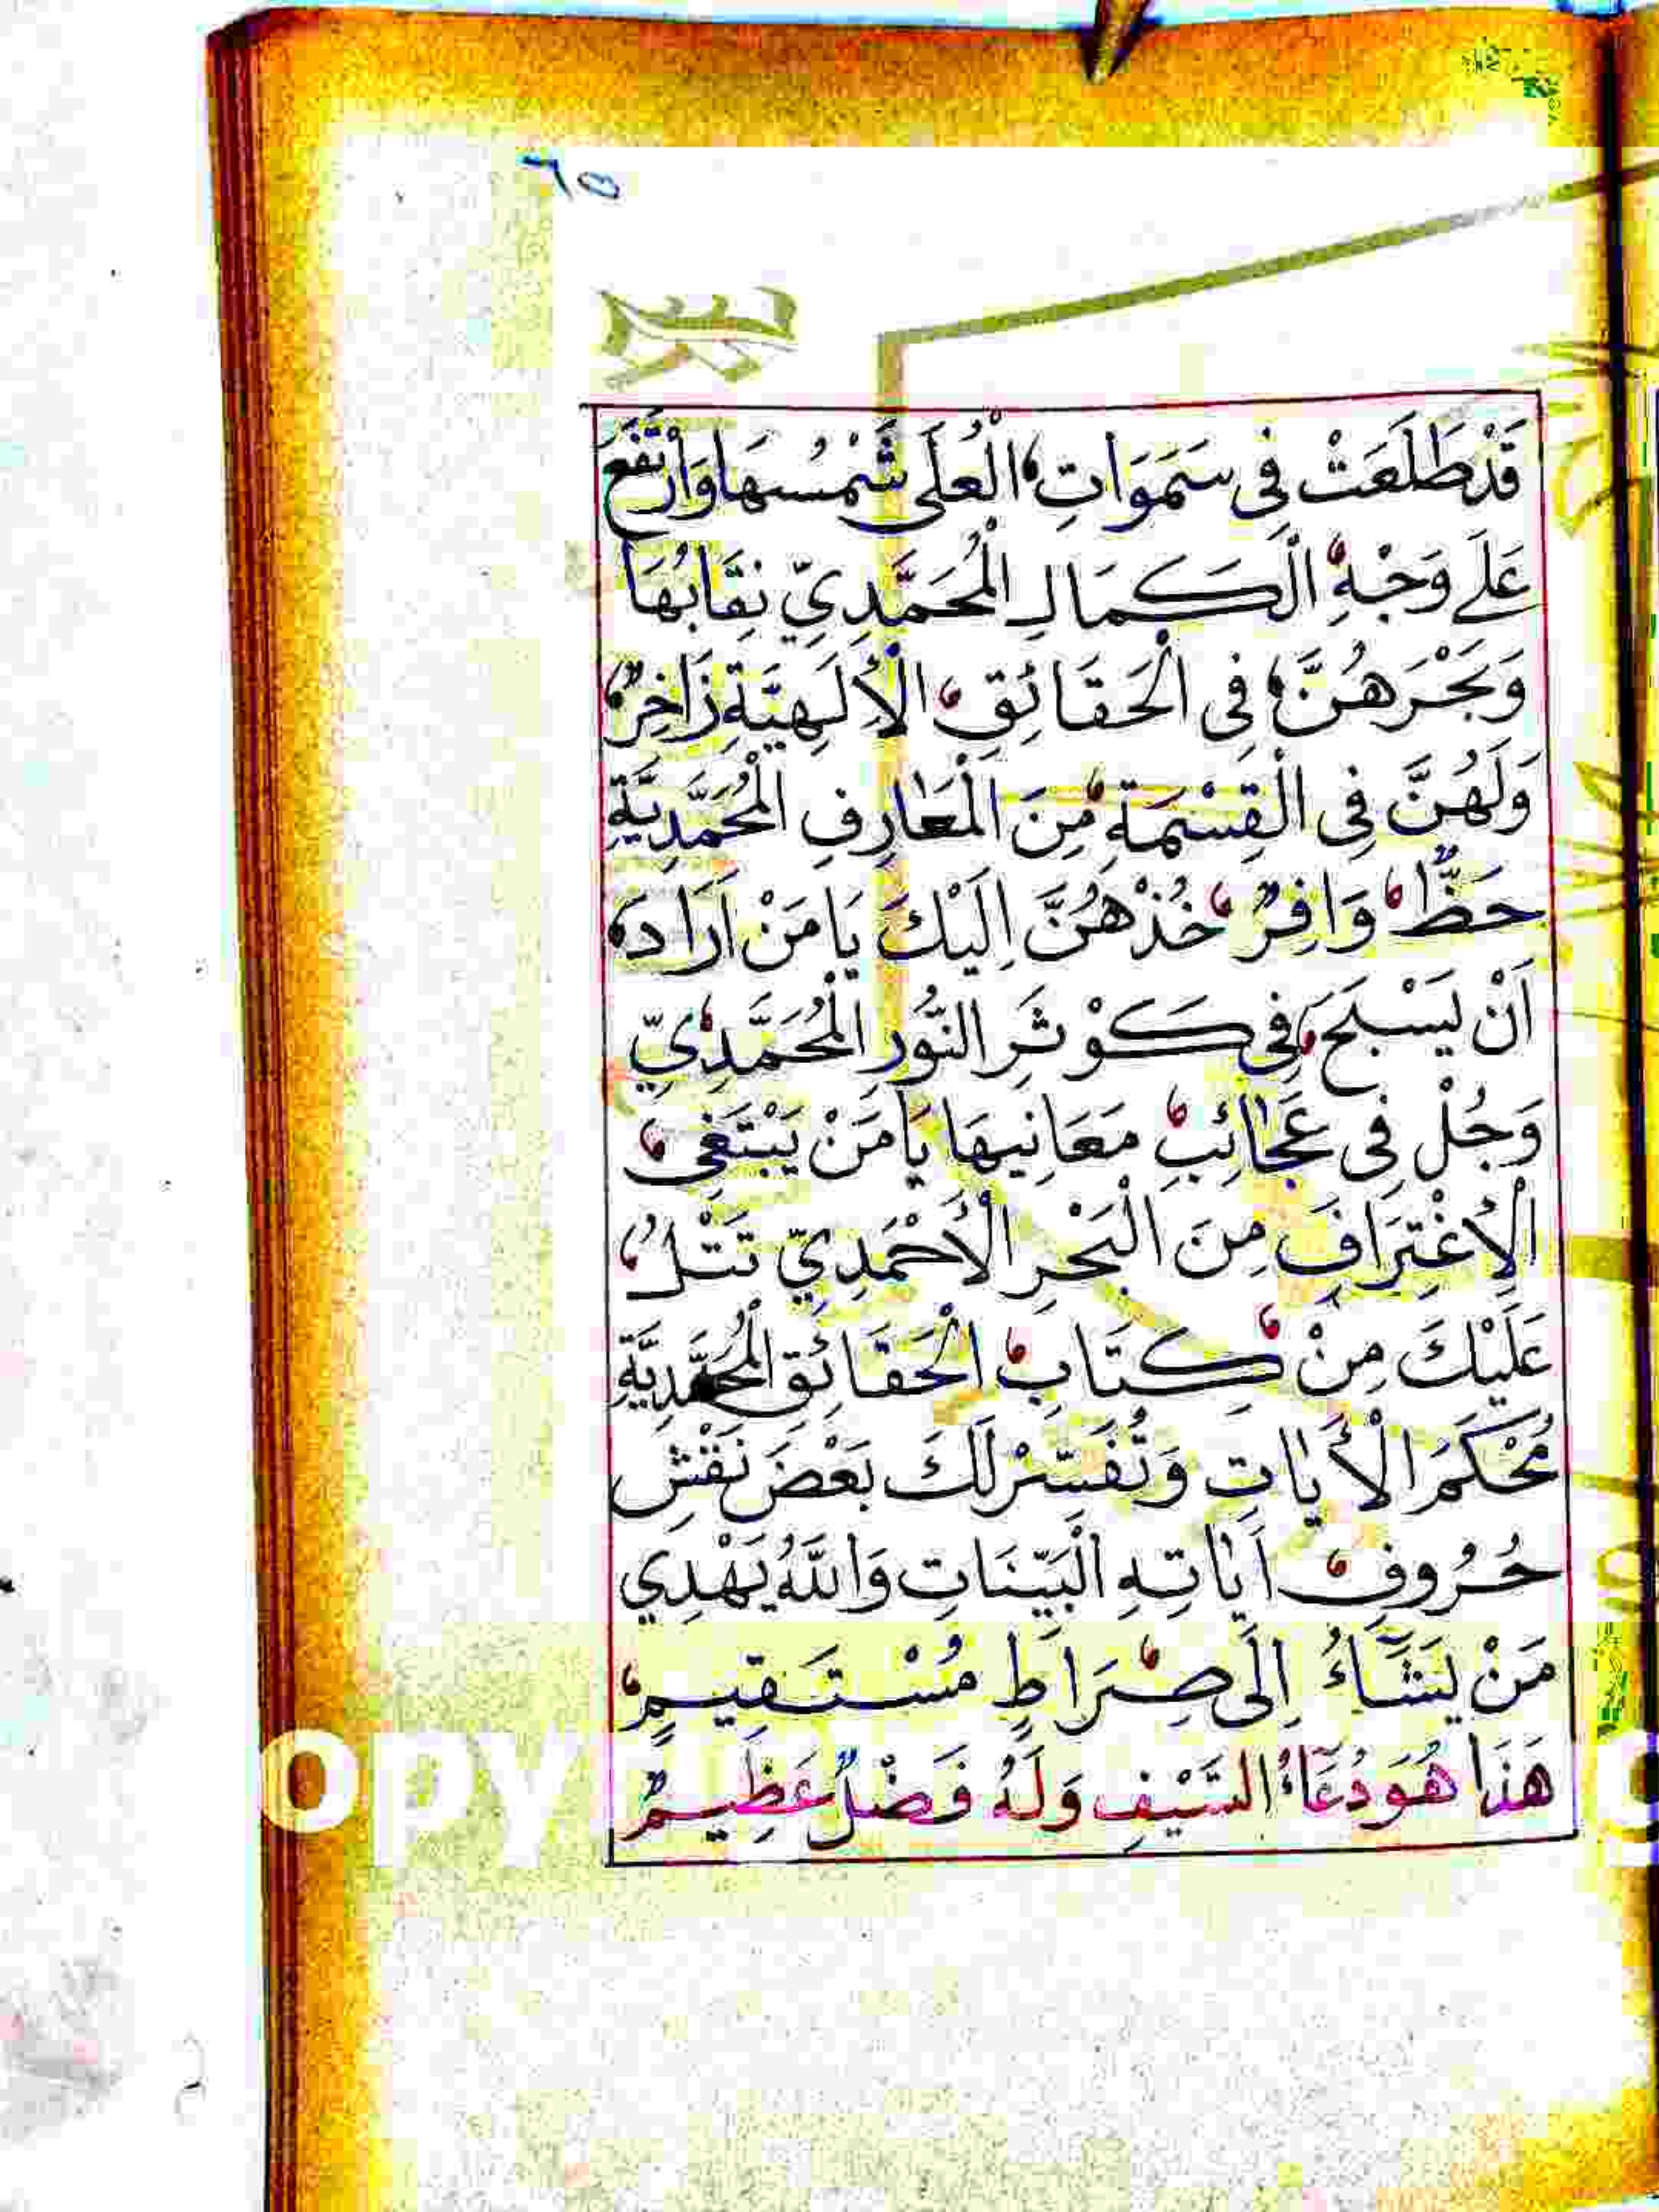 ٦٥
قَدْ طَلَعَتْ فِى سَمَوَاتِ الْعُلَى شَمْسُهَا وَارْتَفَعَ
عَلَے وَجْهِ الْكَمَالِ الْمُحَمَّدِيِّ نِقَابُهَا
وَبَحْرَهُنَّ فِى الْحَقَائِقِ الْأِلَهِيَّةِ زَاخِرٌ
وَلَهُنَّ فِى الْقِسْمَةِ مِنَ الْمَعَارِفِ الْمُحَمَّدِيَّةِ
حَظٌّ وَافِرٌ خُذْهُنَّ اِلَيْكَ يَا مَنْ اَرَادَ
اَنْ يَسْبَحَ فِى كَوْثَرِ النُّورِ الْمُحَمَّدِيِّ
وَجُلْ فِى عَجَائِبِ مَعَانِيهَا يَا مَنْ يَبْتَغِى
الْاِغْتِرَافَ مِنَ الْبَحْرِ الْأَحْمَدِيِّ تَتْلُ
عَلَيْكَ مِنْ كِتَابِ الْحَقَائِقِ الْمُحَمَّدِيَّةِ
مُحْكَمَ الْأَيَاتِ وَتُفَسِّرْ لَكَ بَعْضَ نَقْشِ
حُرُوفِ اَيَاتِهِ الْبَيِّنَاتِ وَاللَّهُ يَهْدِي
مَنْ يَشَآءُ اِلَى صِرَاطٍ مُسْتَقِيمٍ
هَذَا هُوَ دُعَآءُ السَّيْفِ وَلَهُ فَضْلٌ عَظِيمٌ
OPY